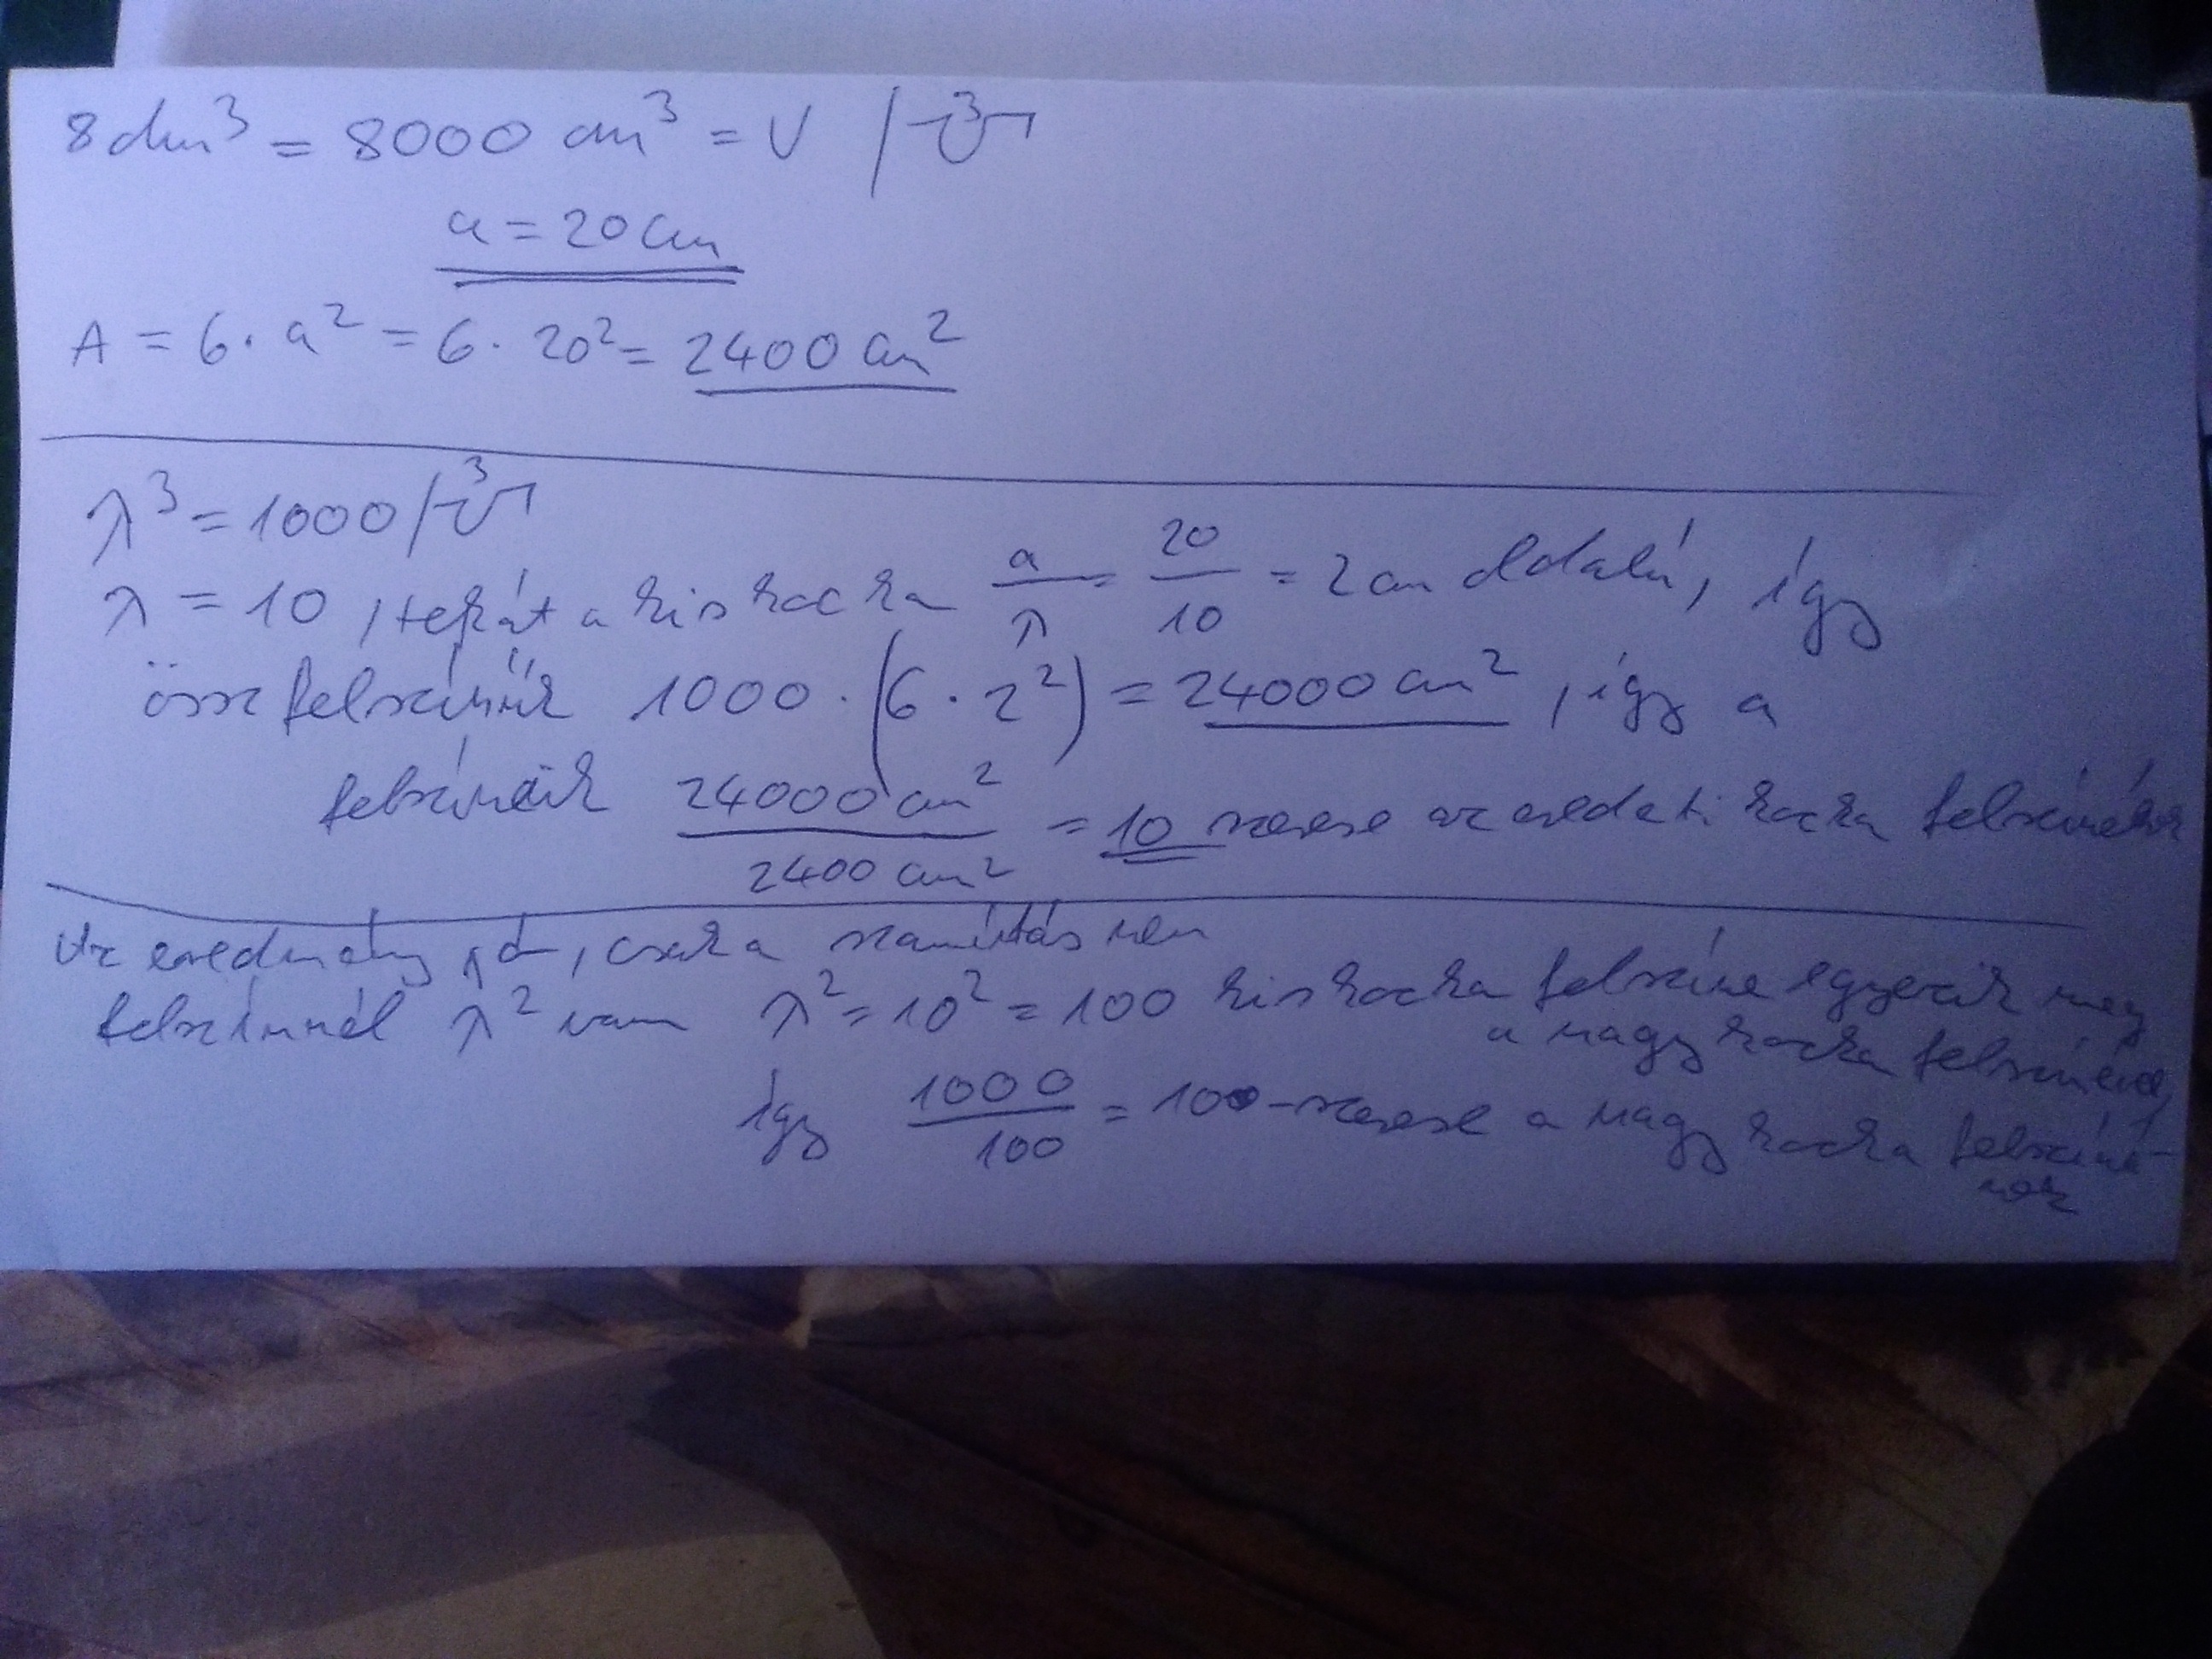 8 dm³ = 8000 cm³ = V /∛
a = 20 cm
A = 6 · a² = 6 · 20² = 2400 cm²
λ³ = 1000 /∛
λ = 10, tehát a kis kocka a/λ = 20/10 = 2 cm oldalú, így
össz felszínük 1000 · (6 · 2²) = 24000 cm², így a
felszínük 24000 cm² / 2400 cm² = 10 szerese az eredeti kocka felszínének
Az eredmény jó, csak a számítás nem
felszínnél λ² van λ² = 10² = 100 kis kocka felszíne egyezik meg
a nagy kocka felszínével,
így 1000/100 = 10-szerese a nagy kocka felszíné-
nek